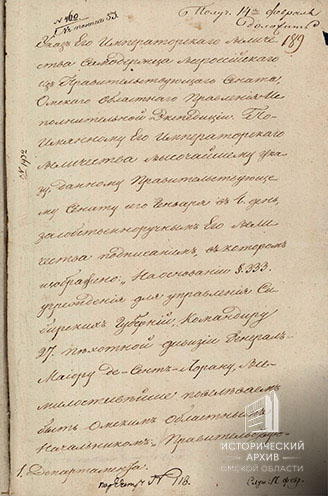 № 760.
Полуц. 14го февраля
189
Указ Его Императорского Величе
ства Самодержца Всероссийскаго
из Правительствующаго Сената,
Омскаго Областнаго Правления Ис
полнительной Экспедиции. По
Имянному Его Императорскаго
Величества высочайшему ука
зу, данному Правительствующе
му Сенату сего Генваря в 4. день,
за собственноручным Его Вели
чества подписанием, в котором
изображено: „На основании §. 333.
учреждения для управления Си
бирских Губерний, Командиру
27. пехотной дивизии Генерал-
Маиору де-Сент-Лорану, Все
милостивейше повелеваем
быть Омским Областным
Начальником". Правительствую
1. Департамента.
№ 118.
ИСТОРИЧЕСКИЙ
АРХИВ
ОМСКОЙ ОБЛАСТИ